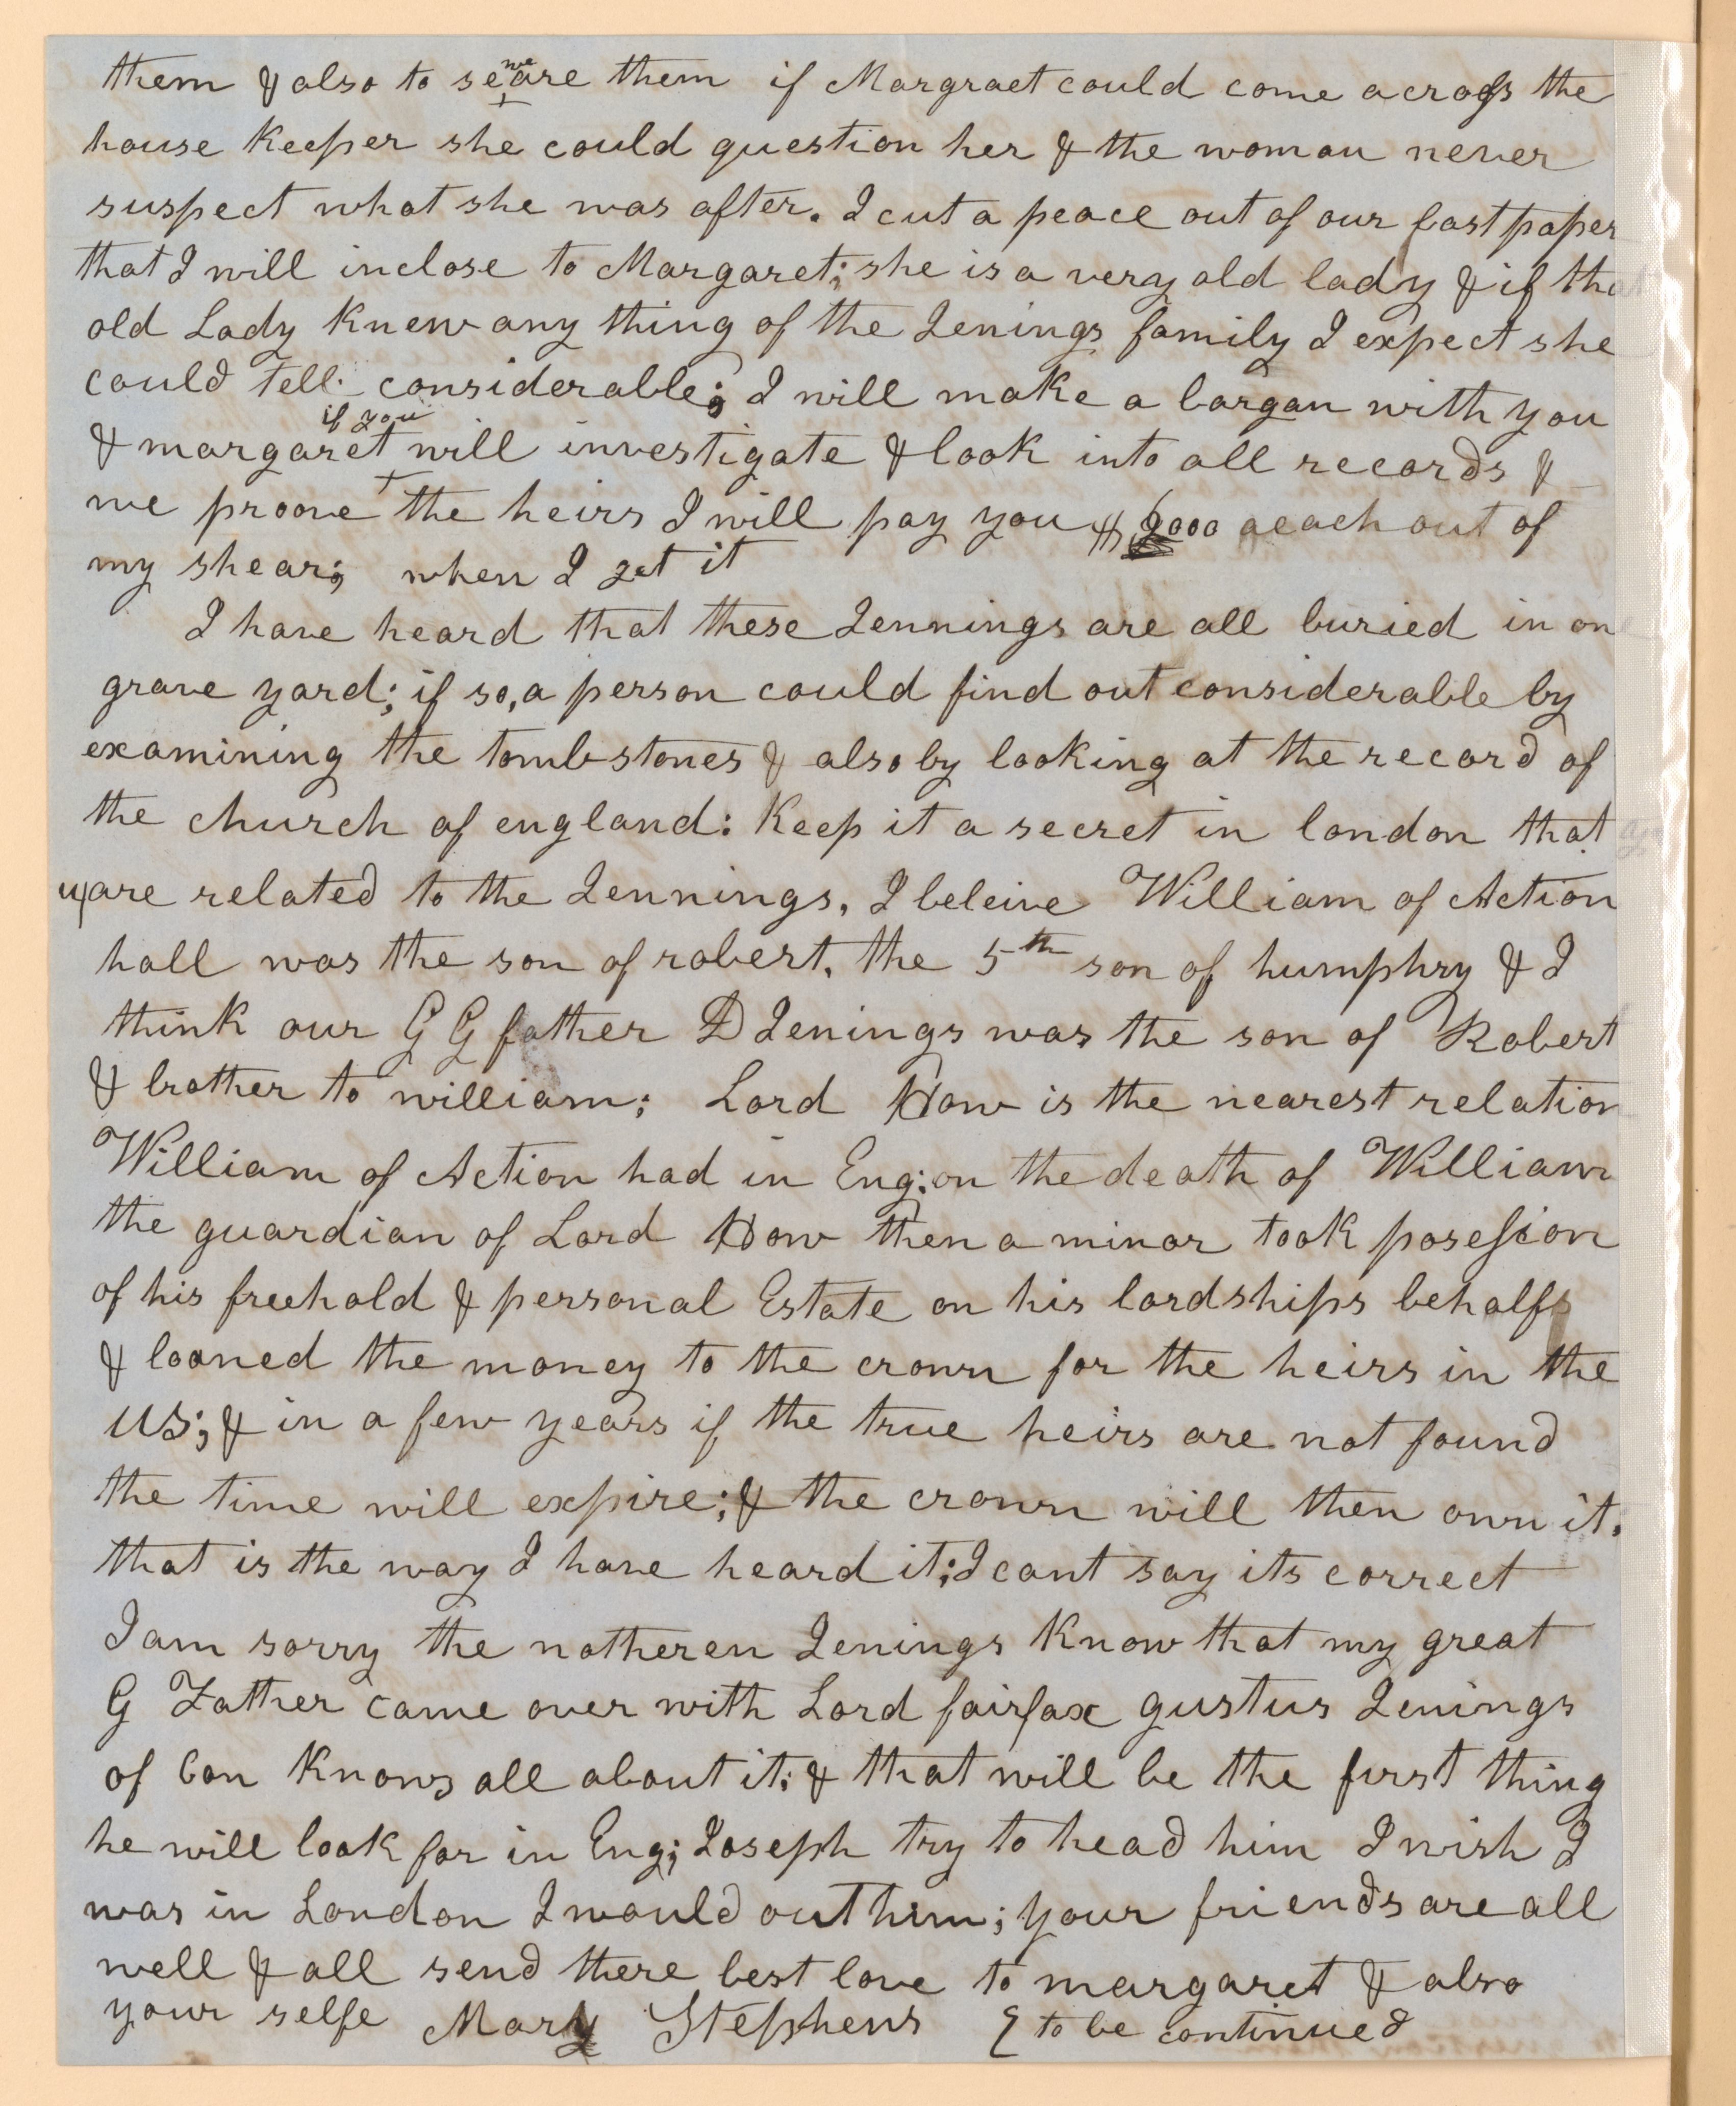 them & also to se^we are them if Margraet could come across the
house Keeper she could question her & the woman never
suspect what she was after. I cut a peace out of our last paper
that I will inclose to Margaret; she is a very old lady & if that
old Lady Knew any thing of the Jenings family I expect she
could tell considerable; I will make a bargan with you
if you
& margaret will investigate & look into all records &
we proove the heirs I will pay you $ 000 aeach out of
my shear; when I get it
I have heard that these Jennings are all buried in one
grave yard; if so, a person could find out considerable by
examining the tombstones & also by looking at the record of
the church of england: Keep it a secret in london that
are related to the Jennings, I beleive William of Action
hall was the son of robert, the 5th son of humphry & I
think our G G father D Jenings was the son of Robert
& brother to william; Lord How is the nearest relation
William of Action had in Eng; on the death of William
the guardian of Lord How then a minor took posession
of his freehold & personal Estate on his lordships behalfs
& looned the money to the crown for the heirs in the
US; & in a few years if the true heirs are not found
the time will expire; & the crown will then own it.
that is the way I have heard it; I cant say its correct
I am sorry the notheren Jenings Know that my great
G Father came over with Lord fairfax gustus Jenings
of Con Knows all about it; & that will be the furst thing
he will look for in Eng; Joseph try to head him I wish I
was in London I would out him; your friends are all
well & all send there best love to margaret & also
your selfe Mary Stephens { to be continued